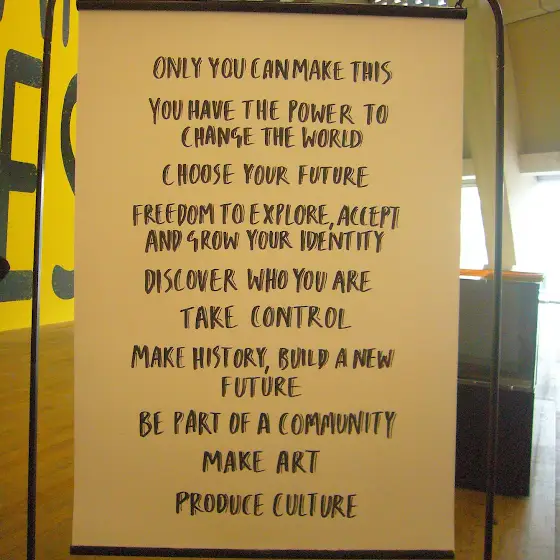 ONLY YOU CAN MAKE THIS
YOU HAVE THE POWER TO
CHANGE THE WORLD
CHOOSE YOUR FUTURE
FREEDOM TO EXPLORE, ACCEPT
AND GROW YOUR IDENTITY
DISCOVER WHO YOU ARE
TAKE CONTROL
MAKE HISTORY, BUILD A NEW
FUTURE
BE PART OF A COMMUNITY
MAKE ART
PRODUCE CULTURE